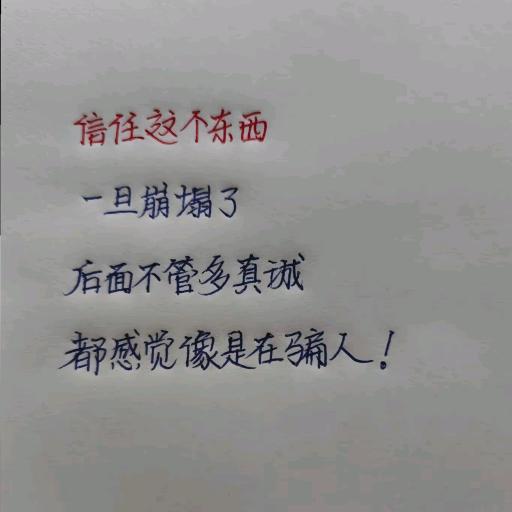 信任这个东西
一旦崩塌了
后面不管多真诚
都感觉像是在骗人！